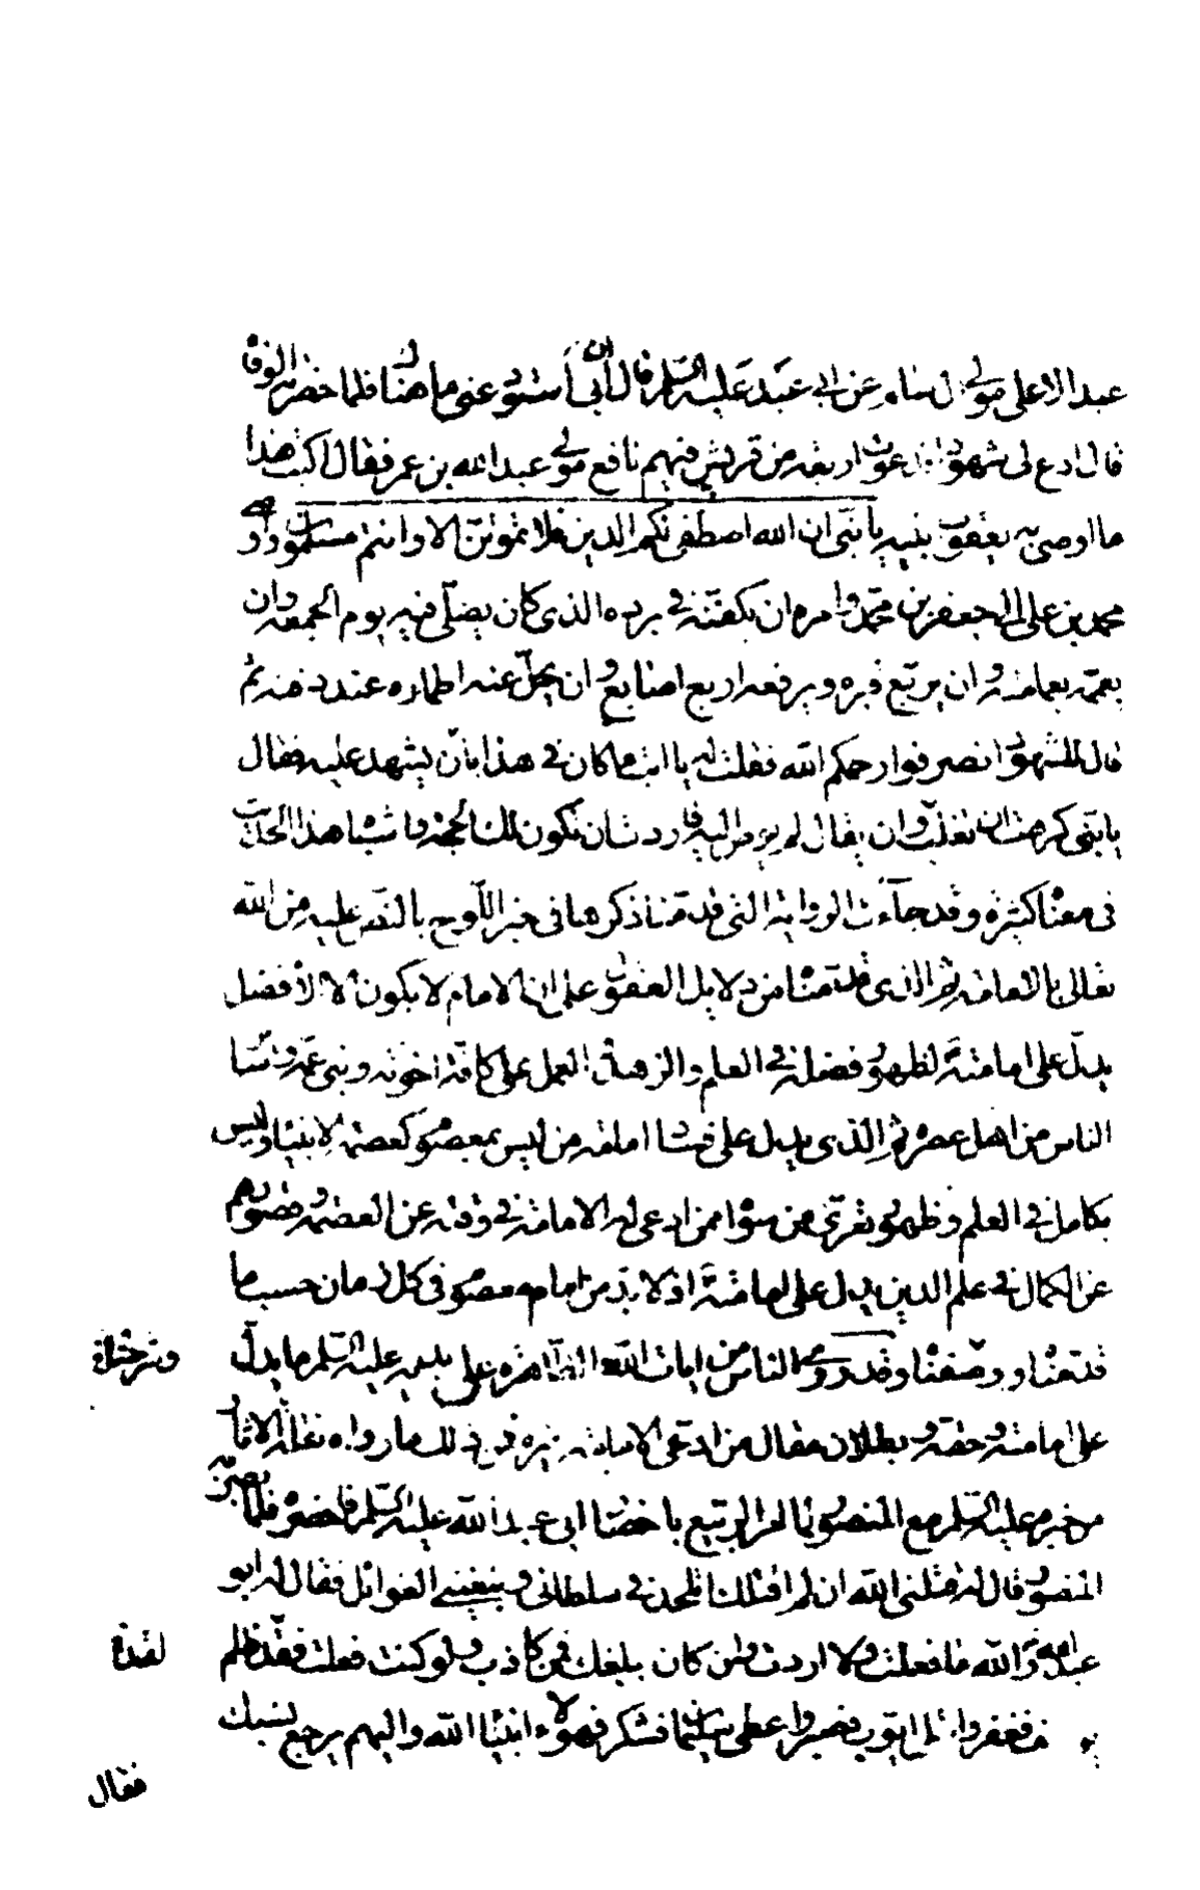 عبد الاعلى مولى ال سام عن ابي عبد عليه السلم قال ان أبي استودعني ما هناك فلما حضرته الوفاة
قال ادع لى شهودا فدعوت اربعة من قريش فيهم نافع مولى عبد الله بن عمر فقال اكتب هذا
ما اوصى به يعقوب بنيه يا بنى ان الله اصطفى لكم الدين فلا تموتن الا وانتم مسلمون واوصى
محمد بن على الى جعفر بن محمد وامره ان يكفنه في برده الذى كان يصلى فيه يوم الجمعة وان
يعممه بعمامته وان يربع قبره ويرفعه اربع اصابع وان يحل عنه اطماره عند دفنه ثم
قال للشهود انصرفوا رحمكم الله فقلت له يا ابت ما كان في هذا بان يشهد عليه فقال
يا بنى كرهت ان تغلب وان يقال لم يوص اليه فاردت ان تكون لك الحجة واشباه هذا الحديث
في معناه كثيرة وقد جاءت الرواية التى قدمنا ذكرها في خبر اللوح بالنص عليه من الله
تعالى بالامامة ثم الذى قدمناه من دلايل العقول على ان الامام لا يكون الا الافضل
يدل على امامته لظهور فضله في العلم والزهد والعمل على كافة اخوته وبنى عمه وساير
الناس من اهل عصره ثم الذى يدل على فساد امامة من ليس بمعصوم كعصمة الانبياء وليس
بكامل في العلم وظهور تعرى من سواه ممن ادعى له الامامة في وقته عن العصمة وقصورهم
عن الكمال في علم الدين يدل على امامته اذ لا بد من امام معصوم في كل زمان حسب ما
قدمناه ووصفناه وقد روى الناس من ايات الله الظاهرة على يديه عليه السلم ما يدل
على امامته وحقه وبطلان مقال من ادعى الامامة لغيره فمن ذلك ما رواه نقلة الاثار
من خبره عليه السلم مع المنصور لما امر الربيع باحضار ابي عبد الله عليه السلم فاحضره فلما بصر به
المنصور قال له قتلنى الله ان لم اقتلك اتلحد في سلطانى وتبغينى الغوائل فقال له ابو
عبد الله والله ما فعلت ولا اردت وان كان بلغك فمن كاذب ولو كنت فعلت فقد ظلم
يوسف فغفر وابتلى ايوب فصبر واعطى سليمان فشكر فهولاء انبياء الله واليهم يرجع نسبك
فقال